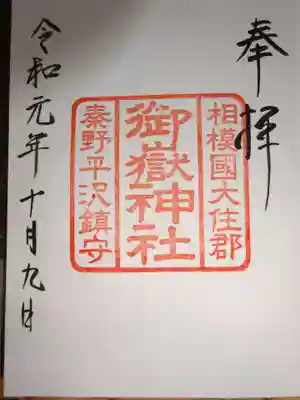 奉拝
相模國大住郡
御嶽神社
秦野平沢鎮守
令和元年十月九日